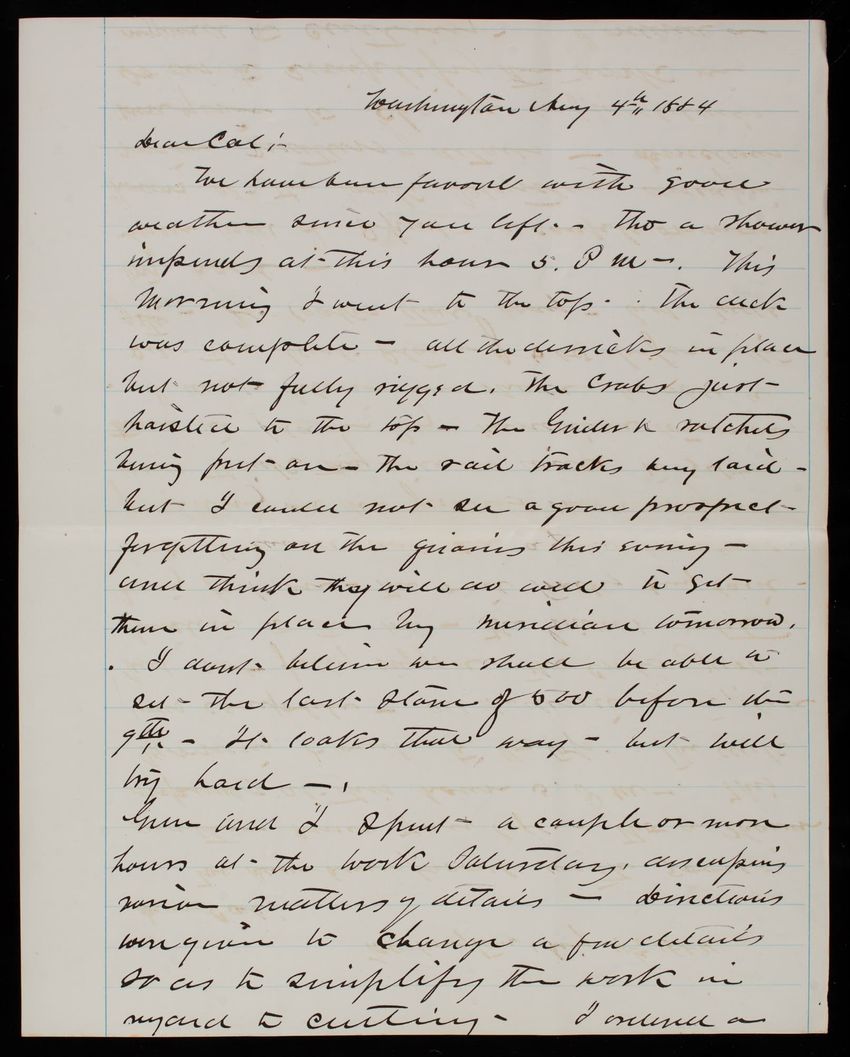 Washington Aug 4th 1884
Dear Col:-
We have been favored with good
weather since you left. - tho a shower
impends at this hour 5. P M -. This
morning I went to the top. The deck
was complete - all the derricks in place
but not fully rigged. The Crabs just
hoisted to the top - The & ratchets
being put on - the rail tracks being laid -
but I could not see a good prospect
for getting on the this evening -
and think they will do well to get
them in place by meridian tomorrow.
I dont believe we shall be able to
set the last stone of 500 before the
9th. - It looks that way - but will
try hard -.
Green and I spent a couple or more
hours at the work Saturday, discussing
various matters of details - Directions
were given to change a few details
so as to simplify the work in
regard to cutting - I ordered a